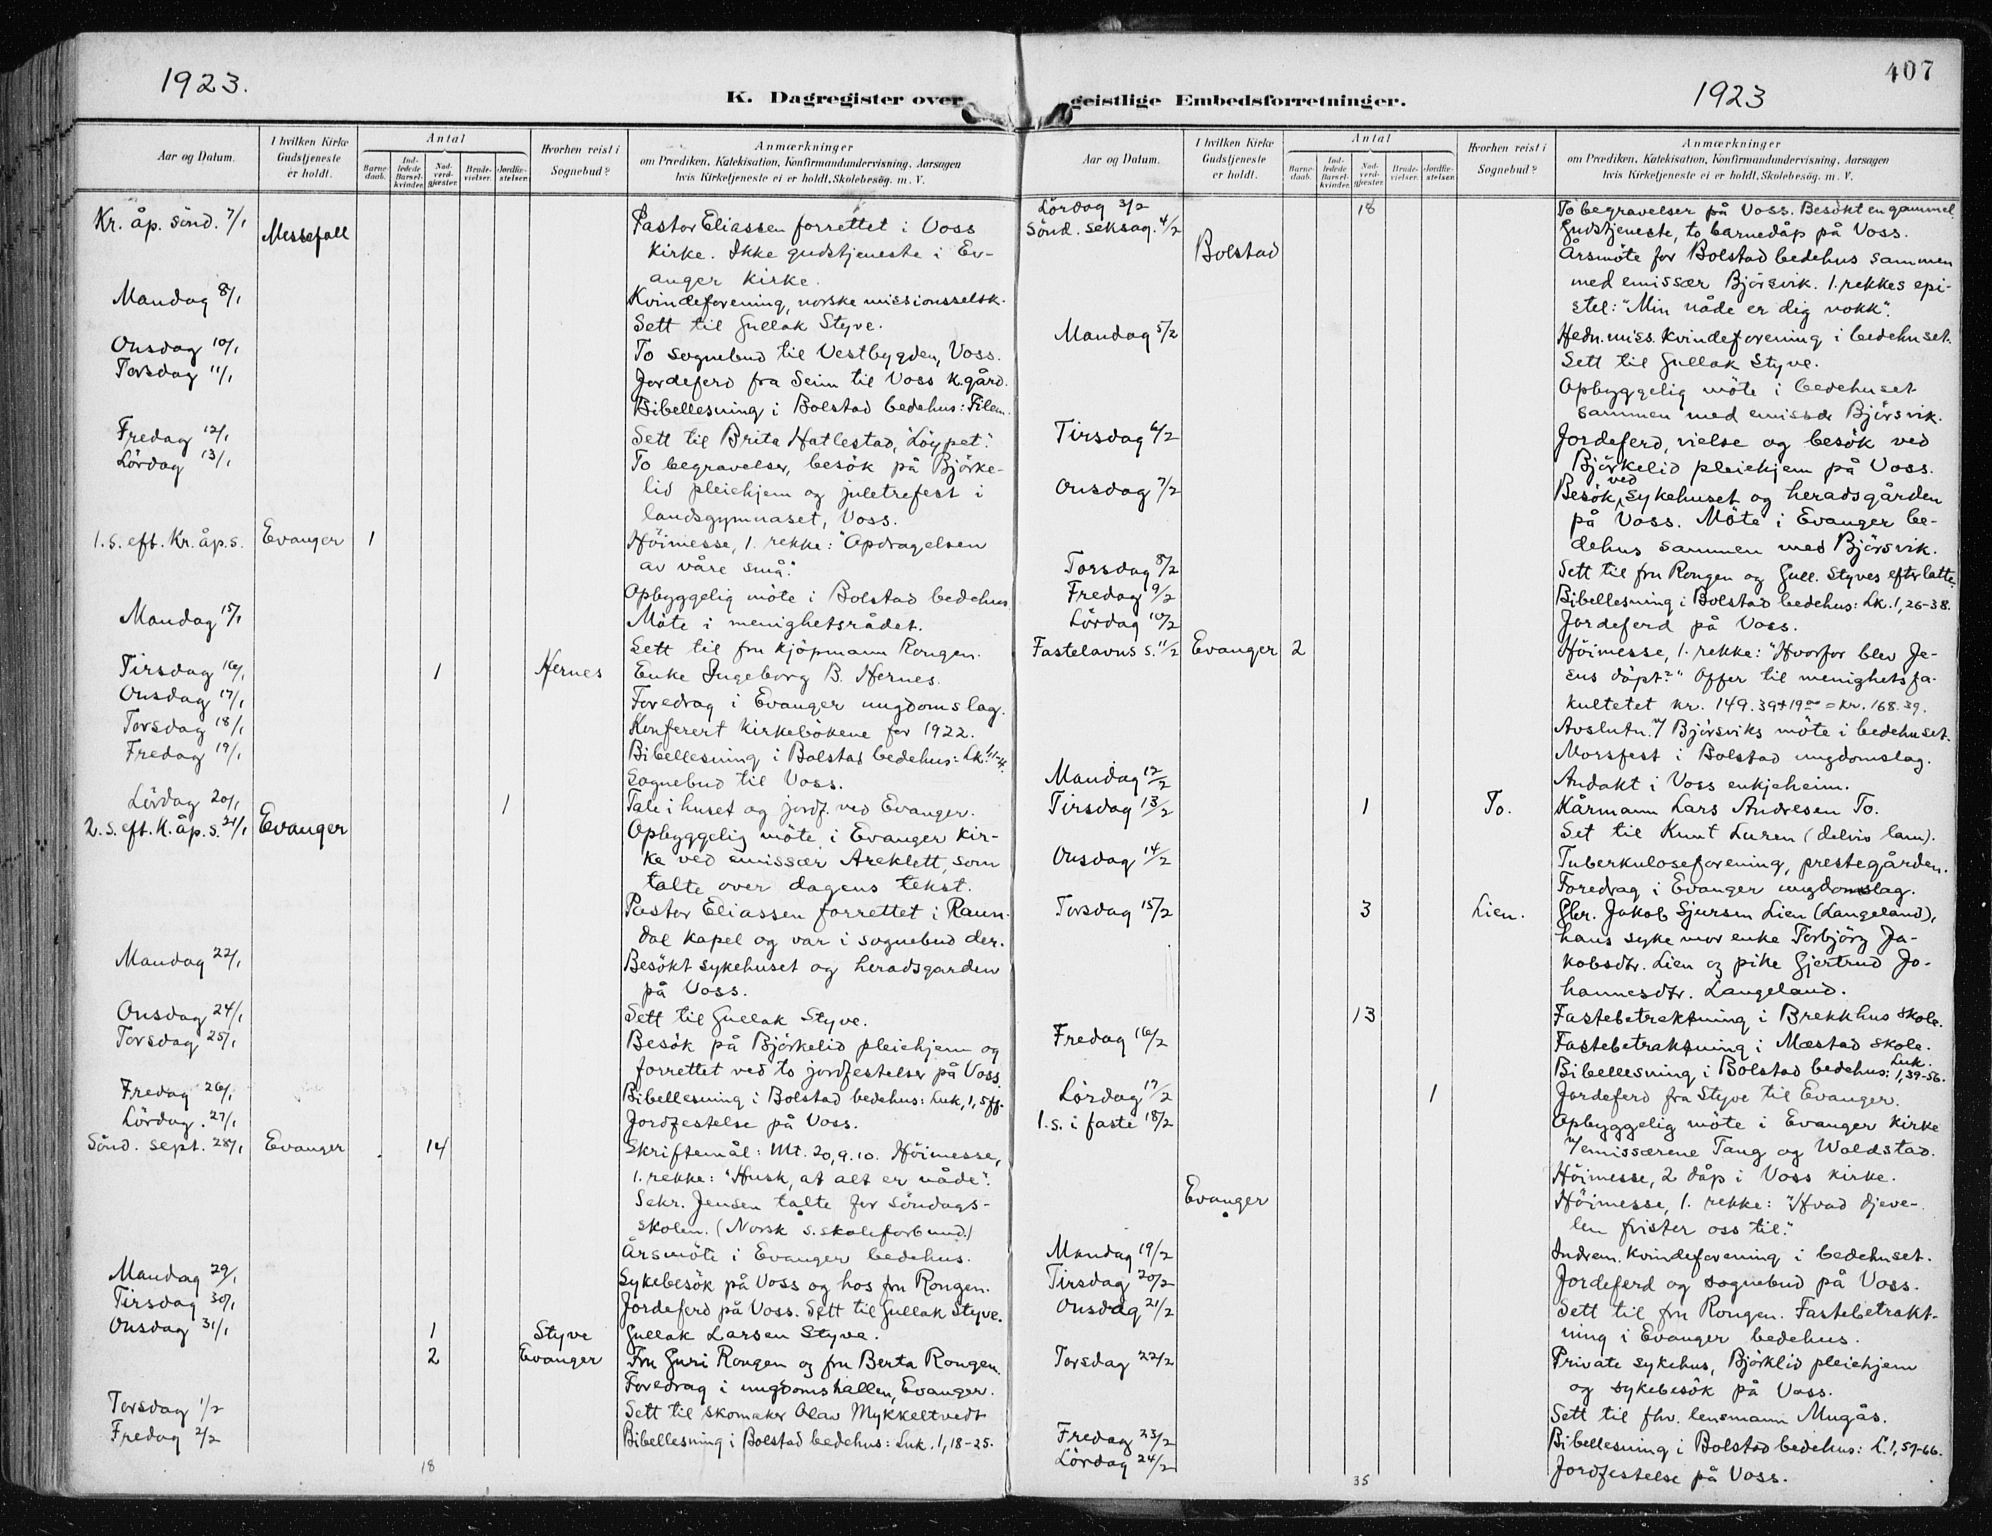 1923.
K. Dagregister over
Aar og Datum.
I hvilken Kirke
Gudstjeneste
er holdt.
Antal
Barne-
daab.
Ind-
ledede
Barsel-
kvinder.
Nad-
verd-
gjæster.
Brude-
vielser.
Jordfæ-
stelser.
Hvorhen reist i
Sognebud?
Anmærkninger
om Prædiken, Katekisation, Konfirmandundervisning, Aarsagen
hvis Kirketjeneste ei er holdt, Skolebesøg. m. V.
Kr. åp. sönd. 7/1 Messefall Pastor Eliassen forrettet i Voss
kirke. Ikke gudstjeneste i Ev-
anger kirke.
Mandag 8/1 Kvindeforening, norske missionsselsk.
Sett til Gullak Styve.
Onsdag 10/1 To sognebud til Vestbygden, Voss.
Torsdag 11/1 Jordeferd fra Seim til Voss k.gård.
Bibellesning i Bolstad bedehus: Filem.
Fredag 12/1 Sett til Brita Hatlestad, "Löypet".
Lördag 13/1 To begravelser, besök på Björke-
lid pleiehjem og juletrefest i
landsgymnaset, Voss.
1. s. eft. Kr. åp. s. Evanger 1 Höimesse, 1. rekke: "Opdragelsen
av våre små."
Opbyggelig möte i Bolstad bedehus
Mandag 15/1 Möte i menighetsrådet.
Sett til fru kjöpmann Rongen.
Tirsdag 16/1 1 Hernes Enke Ingeborg B. Hernes.
Onsdag 17/1 Foredrag i Evanger ungdomslag.
Torsdag 18/1 Konferert kirkebökene for 1922.
Fredag 19/1 Bibellesning i Bolstad bedehus: Lk. 1,1-4.
Sognebud til Voss.
Lördag 20/1 1 Tale i huset og jordf. ved Evanger.
2. s. eft. K. åp. s. 21/1 Evanger Opbyggelig möte i Evanger kir-
ke ved emissær Areklett, som
talte over dagens tekst.
Pastor Eliassen forrettet i Raun-
dal kapel og var i sognebud der.
Mandag 22/1 Besökt sykehuset og heradsgarden
på Voss.
Onsdag 24/1 Sett til Gullak Styve.
Torsdag 25/1 Besök på Björkelid pleiehjem og
forrettet ved to jordfestelser på Voss.
Fredag 26/1 Bibellesning i Bolstad bedehus: Luk, 1, 5ff.
Lördag 27/1 Jordfestelse på Voss.
Sönd. sept. 28/1 Evanger 14 Skriftemål: Mt. 20, 9.10. Höimesse,
1. rekke: "Husk, at alt er nåde".
Sekr. Jensen talte for söndags-
skolen. (Norsk s.skoleforbund.)
Årsmöte i Evanger bedehus.
Mandag 29/1 Sykebesök på Voss og hos fru Rongen.
Tirsdag 30/1 Jordeferd på Voss. Sett til Gullak Styve.
Onsdag 31/1 1 Styve Gullak Larsen Styve.
2 Evanger Fru Guri Rongen og fru Berta Rongen.
Foredrag i ungdomshallen, Evanger.
Torsdag 1/2 Sett til skomaker Olav Mykkeltvedt
Fredag 2/2 Bibellesning i Bolstad bedehus: Luk. 1, 18-25.
18
geistlige Embedsforretninger.
1923
407
Aar og Datum.
I hvilken Kirke
Gudstjeneste
er holdt.
Antal
Barne-
daab.
Ind-
ledede
Barsel-
kvinder.
Nad-
verd-
gjæster.
Brude-
vielser.
Jordfæ-
stelser.
Hvorhen reist i
Sognebud?
Anmærkninger
om Prædiken, Katekisation, Konfirmandundervisning, Aarsagen
hvis Kirketjeneste ei er holdt, Skolebesøg. m. V.
Lördag 3/2 18 To begravelser på Voss. Besökt en gammel.
Sönd. seksag. 4/2 Gudstjeneste, to barnedåp på Voss.
Bolstad Årsmöte for Bolstad bedehus sammen
med emissær Björsvik. 1. rekkes epi-
stel: "Min nåde er dig nokk".
Mandag 5/2 Hedn.miss. kvindeforening i bedehuset.
Sett til Gullak Styve.
Opbyggelig möte i bedehuset
sammen med emissær Björsvik.
Tirsdag 6/2 Jordeferd, vielse og besök ved
Björkelid pleiehjem på Voss.
Onsdag 7/2 Besök ved sykehuset og heradsgården
på Voss. Möte i Evanger be-
dehus sammen med Björsvik.
Torsdag 8/2 Sett til fru Rongen og Gull. Styves efterlatte.
Fredag 9/2 Bibellesning i Bolstad bedehus: Lk. 1, 26-38.
Lördag 10/2 Jordeferd på Voss.
Fastelavns s. 11/2 Evanger 2 Höimesse, 1. rekke: "Hvorfor blev Je-
sus döpt?" Offer til menighetsfa-
kultetet kr. 149.39 + 19.00 = kr. 168.39.
Avslutn. v/ Björsviks möte i bedehuset.
Morsfest i Bolstad ungdomslag.
Mandag 12/2 Andakt i Voss enkjeheim.
Tirsdag 13/2 1 To. Kårmann Lars Andresen To.
Set til Knut Luren (delvis lam).
Onsdag 14/2 Tuberkuloseforening, prestegården.
Foredrag i Evanger ungdomslag.
Torsdag 15/2 3 Lien. Gbr. Jakob Sjursen Lien (Langeland),
hans syke mor enke Torbjörg Ja-
kobsdtr. Lien og pike Gjertrud Jo-
hannesdtr. Langeland.
13 Fastebetraktning i Brekkhus skole.
Fredag 16/2 Fastebetraktning i Mæstad skole.
Bibellesning i Bolstad bedehus: Luk. 1,39-56.
Lördag 17/2 1 Jordeferd fra Styve til Evanger.
1. s. i faste 18/2 Opbyggelig möte i Evanger kirke
v/ emissærene Tang og Waldstad.
Höimesse, 2 dåp i Voss kirke.
Evanger Höimesse, 1. rekke: "Hvad djeve-
len frister oss til".
Mandag 19/2 Indrem. kvindeforening i bedehuset.
Tirsdag 20/2 Jordeferd og sognebud på Voss.
Onsdag 21/2 Sett til fru Rongen. Fastebetrakt-
ning i Evanger bedehus.
Torsdag 22/2 Private sykehus, Björklid pleiehjem
og sykebesök på Voss.
Sett til fhv. lensmann Mugås.
Fredag 23/2 Bibellesning i Bolstad bedehus: L. 1, 57-66.
Lördag 24/2 Jordfestelse på Voss.
35